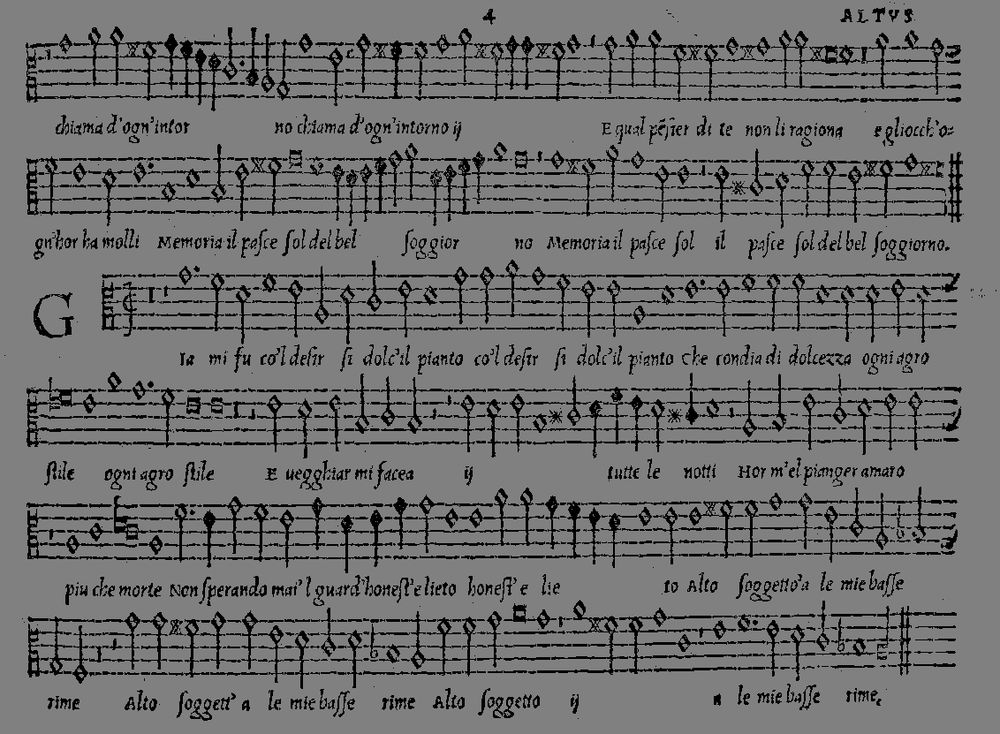 4 ALTVS
chiama d'ogn'intor no chiama d'ogn'intorno ij E qual pẽſier di te non li ragiona e gliocch'o=
gn'hor ha molli Memoria il paſce ſol del bel ſoggior no Memoria il paſce ſol il paſce ſol del bel ſoggiorno.
G
Ia mi fu co'l deſir ſi dolc'il pianto co'l deſir ſi dolc'il pianto Che condia di dolcezza ogni agro
ſtile ogni agro ſtile E uegghiar mi facea ij tutte le notti Hor m'el pianger amaro
piu che morte Non ſperando mai'l guard'honeſt'e lieto honeſt'e lie to Alto ſoggetto'a le mie baſſe
rime Alto ſoggett'a le mie baſſe rime Alto ſoggetto ij a le mie baſſe rime.